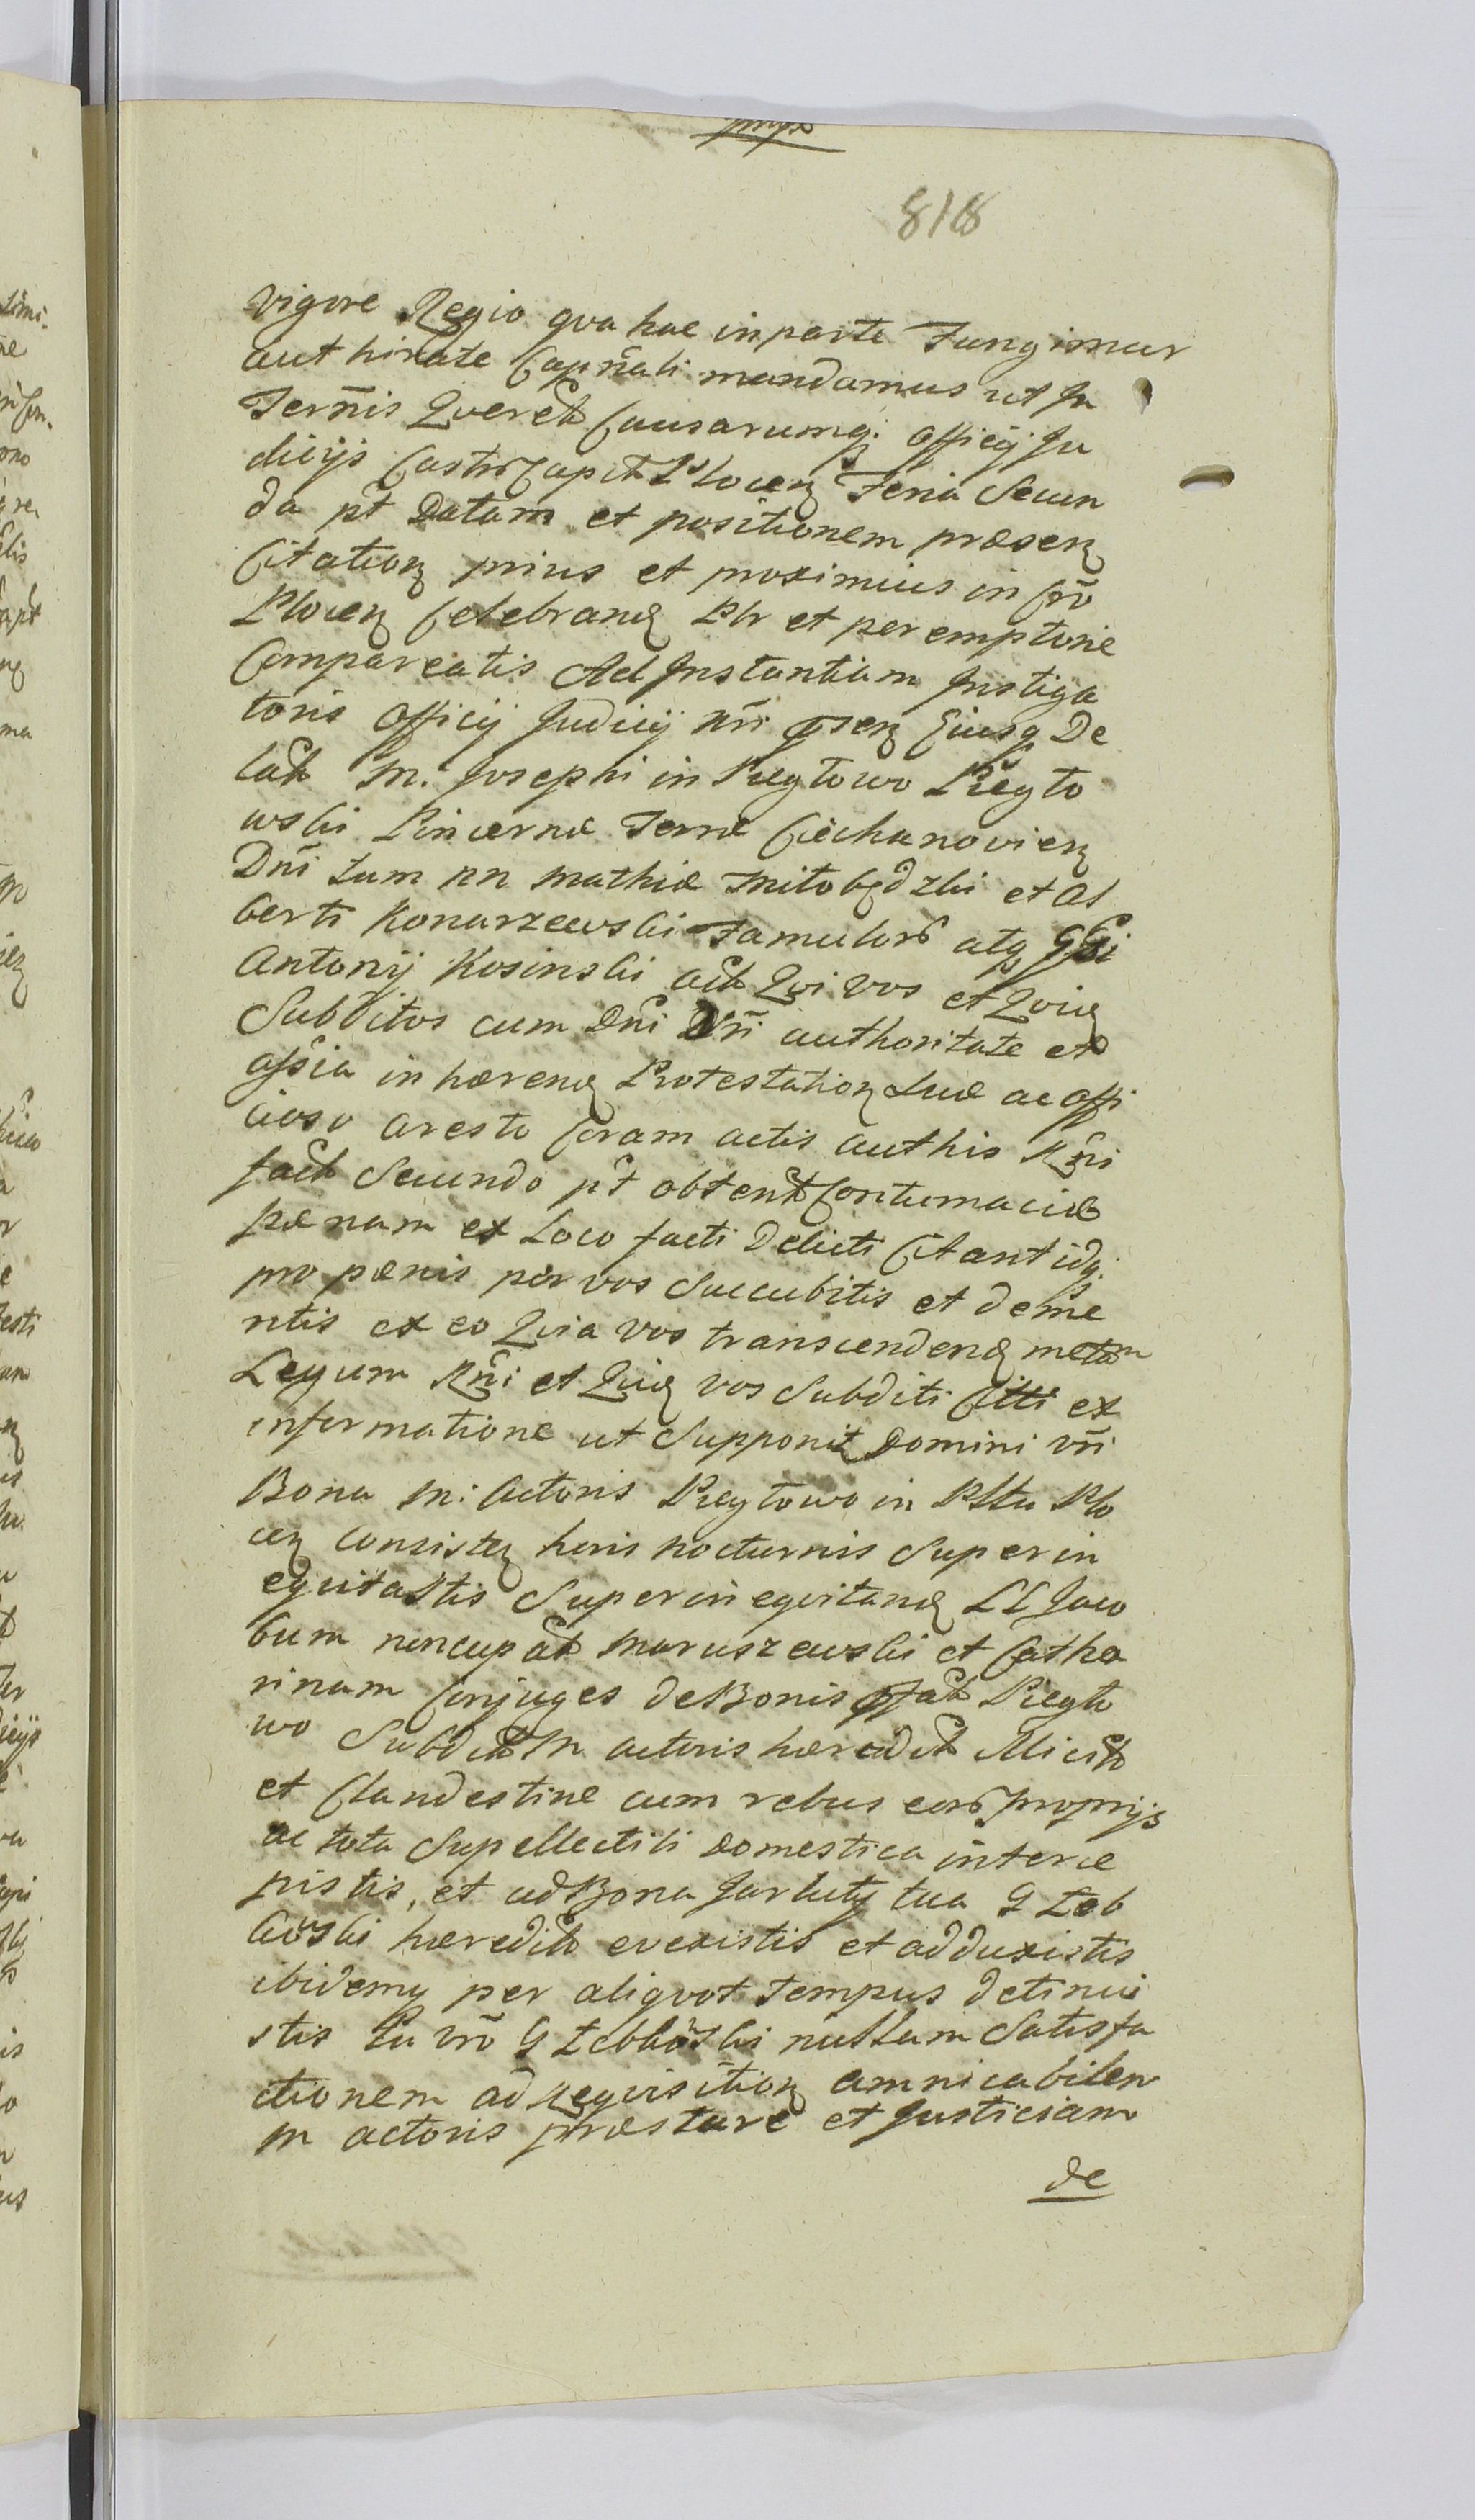 818
Vigore Regia qva hac in parte Fungimur
authoritate Capnali mandamus ut In
Termis Qveret Causarumq; officij Ju
dicijs Castr Capit Plocen Feria Secun
da pt Datam et positionem præsen
Citation prius et proximius in Cro
Plocen Celebrand Plr et peremptorie
Compareatis Ad Instantiam Instiga
toris officij Judicij nri psen Eiusq De
lat M. Josephi in Piegtowo Piegto
wski Pincernæ Terræ Ciechanovien
Dni tum nn Mathiæ Miłobędzki et Al
berti Konarzewski Famulors atq
Antonij Kosinski act Qvi vos et Qvia
Subditos cum Dni Vri authoritate et
assia inhærend Protestation suæ ac offi
cioso aresto Coram actis authis Rgni
fact Secundo pt obtent Contumaciæ
pænam ex Loco facti Delicti Citant idq;
pro pænis per vos Succubitis et deme
ritis ex eo Qvia vos transcendend metam
Legum Rgni et Qvia vos Subditi Citti ex
informatione ut Supponit Domini vri
Bona M: Actoris Piegtowo in Pttu Plo
cen Consisten horis nocturnis Superin
eqvitastis Superineqvitand LL Jaco
bum nuncupat Maruszewski et Catha
rinam Conjuges de Bonis pfat Piegto
wo Subdit M actoris hæredit illicite
et Clandestine cum rebus eors proprijs
ac tota Supellectili domestica interce
pistis, et ad Bona Jarluty tua G Łeb
kowski hæredit evexistis et adduxistis
ibidemq per aliqvot tempus detinui
stis tu vro G Łebkowski nullam Satisfa
ctionem ad Reqvisition amnicabilem
M actoris præstare et Justiciam
de